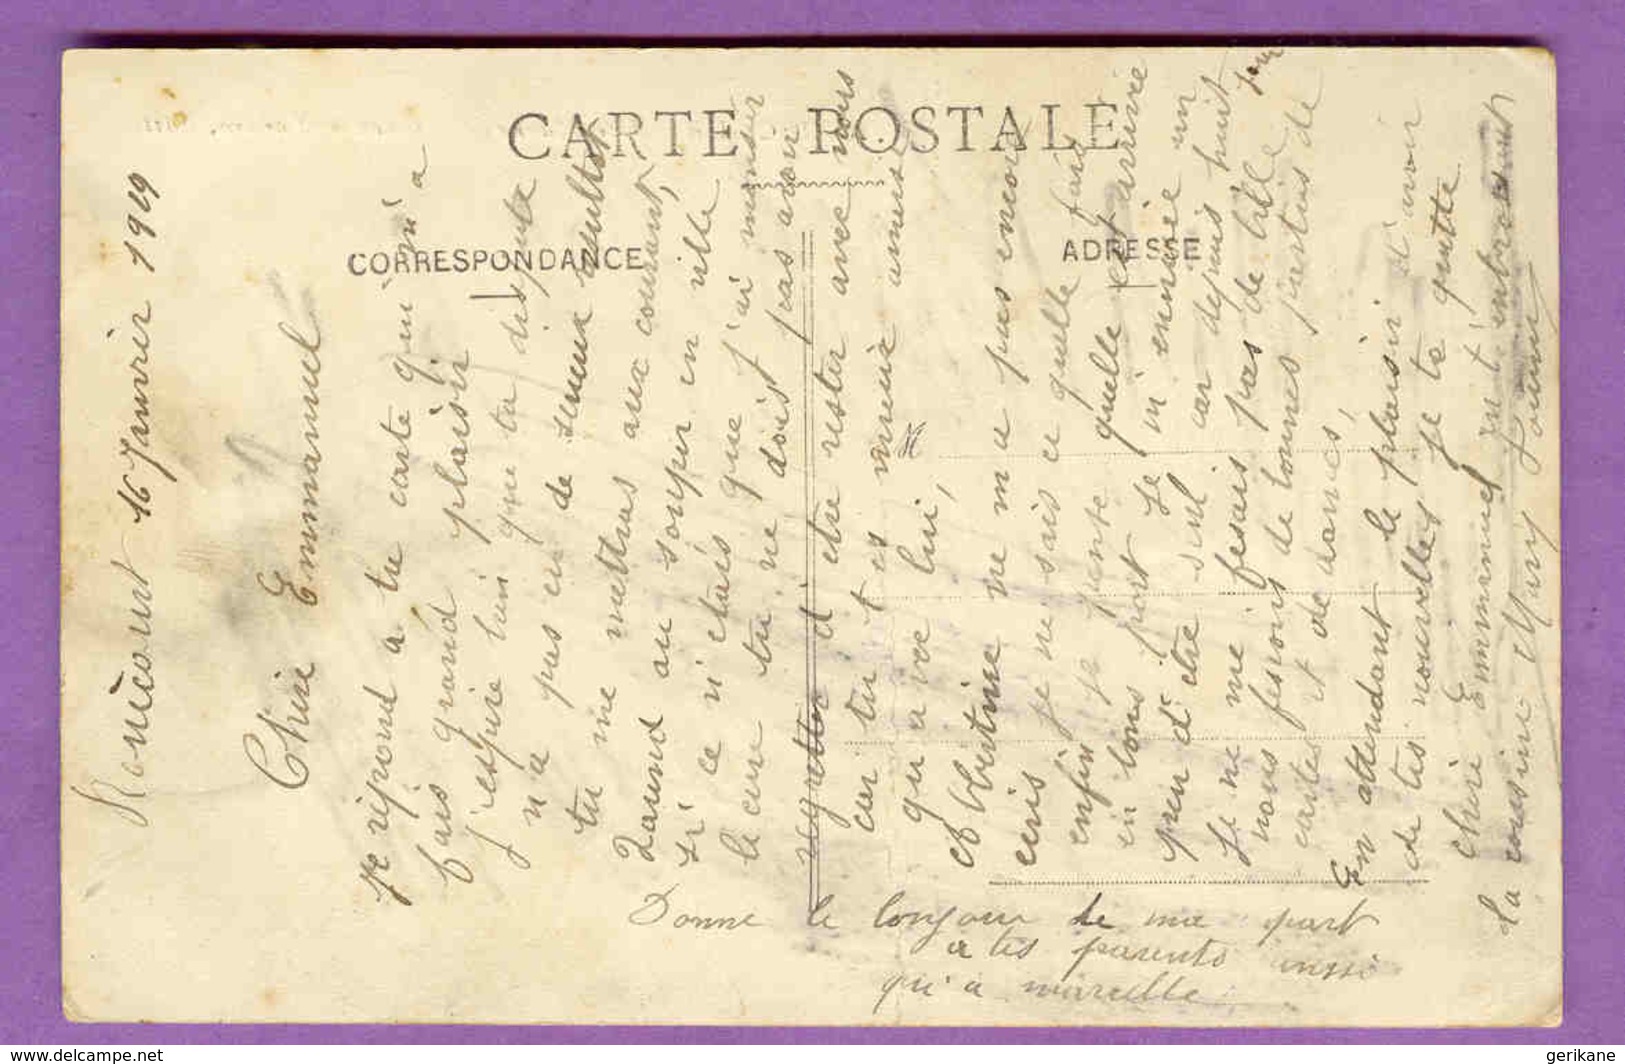 CARTE POSTALE
CORRESPONDANCE
ADRESSE
16 Janvier 1919
Chère Emmanuel
Je répond a ta carte qui m'a
fais grand plaisir
j'espère bien que tu
n'a pas eu de
tu me mettras aux courant,
Quand au souper en ville
si ce n'étais que j'ai
la cure tu ne dois pas avoir
regretter d etre rester avec nous
car tu t es mieux amusé
qu avec lui,
ne m a pas encore
ecris je ne sais ce quelle fais
enfin je pense quelle est arrivée
en bons port Je m ennuie un
peu d etre seul car depuis huit jour
Je ne me fesais pas de bile
nous fesions de bonnes parties de
cartes et de dames,
En attendant le plaisir d'avoir
de tes nouvelles je te quitte
cher Emmanuel en t'embrassant
Ta cousine
Donne le bonjour de ma part
a tes parents aussi
qu'a marcelle
delcampe.net
gerikane